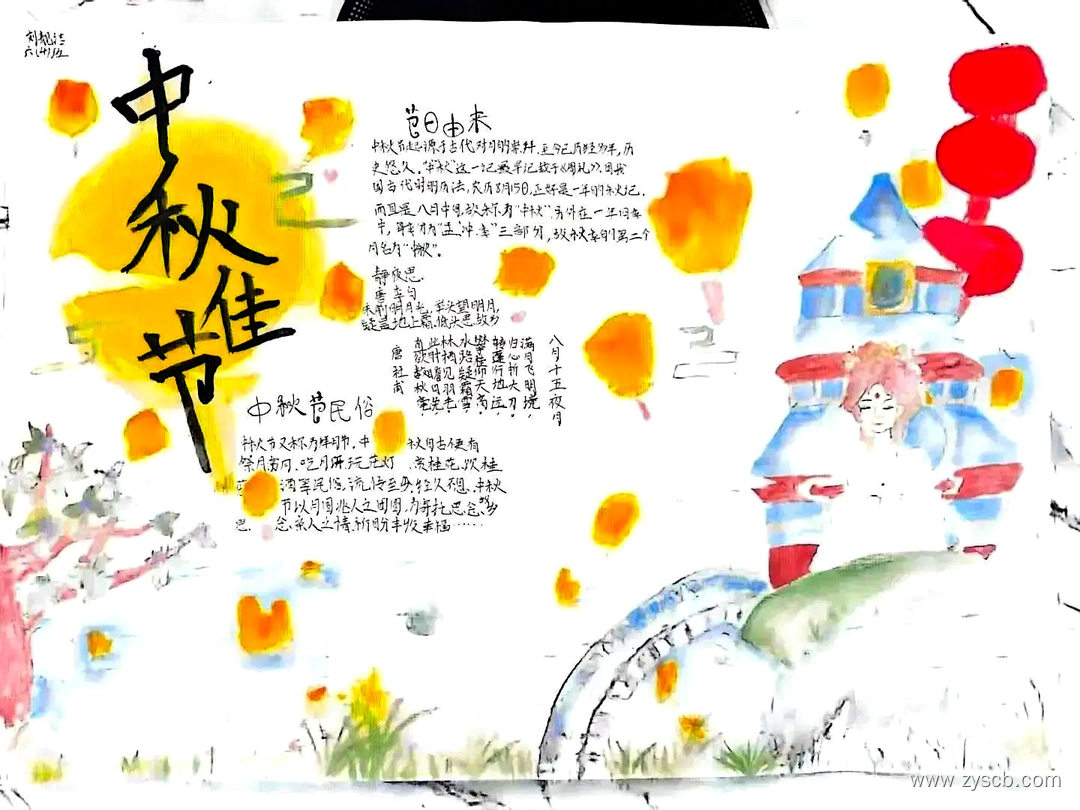 刘靓洁
六(4)班
中秋佳节
节日由来
中秋节起源于古代对月的崇拜.至今已历经多年,历
史悠久."中秋"这一记最早记载于《周礼》.因我
国古代时的历法,农历8月15日,正好是一年的秋记.
而且是八月中旬,故称为"中秋".另外在一年四季
中,每季分为"孟""仲""季"三部分,故秋季的第二个
月名为"仲秋".
静夜思.
唐 李白
床前明月光,举头望明月,
疑是地上霜,低头思故乡
八月十五夜月
唐 杜甫
满月飞明镜
归心折大刀.
转蓬行地远,
攀桂仰天高.
水路疑霜雪
林栖见羽毛
此时瞻白兔
直欲数秋毫
中秋节民俗
中秋节又称为团月节,中 秋自古便有
祭月赏月.吃月饼.玩花灯 .赏桂花.饮桂
花 酒等民俗,流传至今,经久不息.中秋
节以月圆兆人之团圆,为寄托思念故乡
思 念亲人之情,祈盼丰收幸福……
www.zyscb.com